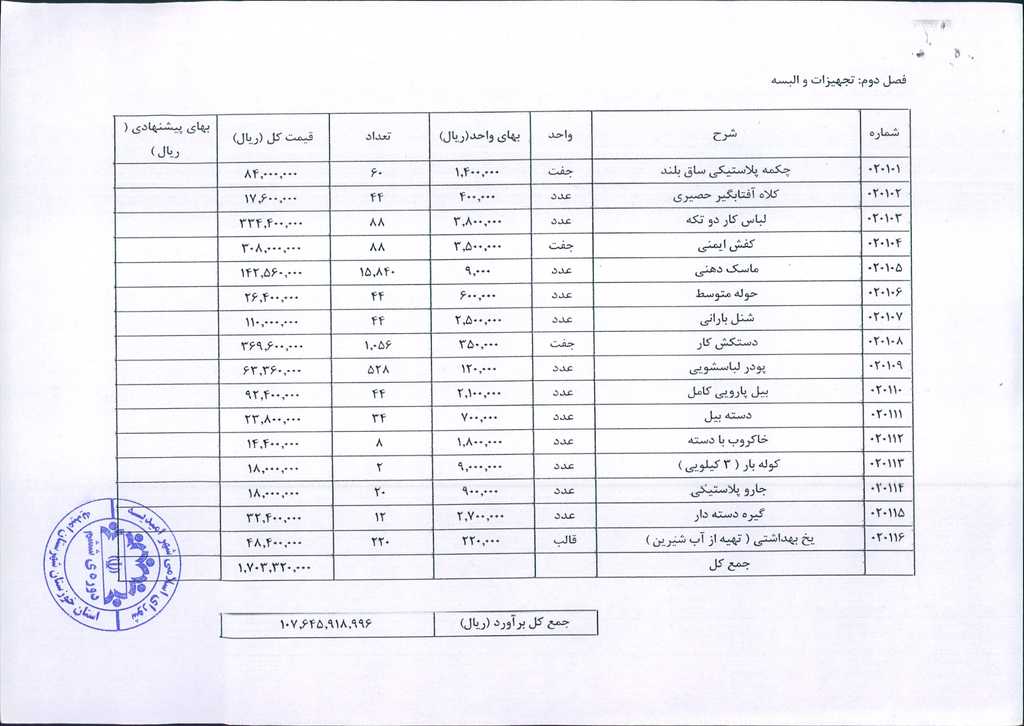 فصل دوم: تجهیزات و البسه
شماره شرح واحد بهای واحد(ریال) تعداد قیمت کل (ریال) بهای پیشنهادی ( ریال)
۰۲۰۱۰۱ چکمه پلاستیکی ساق بلند جفت ۱,۴۰۰,۰۰۰ ۶۰ ۸۴,۰۰۰,۰۰۰
۰۲۰۱۰۲ کلاه آفتابگیر حصیری عدد ۴۰۰,۰۰۰ ۴۴ ۱۷,۶۰۰,۰۰۰
۰۲۰۱۰۳ لباس کار دو تکه عدد ۳,۸۰۰,۰۰۰ ۸۸ ۳۳۴,۴۰۰,۰۰۰
۰۲۰۱۰۴ کفش ایمنی جفت ۳,۵۰۰,۰۰۰ ۸۸ ۳۰۸,۰۰۰,۰۰۰
۰۲۰۱۰۵ ماسک دهنی عدد ۹,۰۰۰ ۱۵,۸۴۰ ۱۴۲,۵۶۰,۰۰۰
۰۲۰۱۰۶ حوله متوسط عدد ۶۰۰,۰۰۰ ۴۴ ۲۶,۴۰۰,۰۰۰
۰۲۰۱۰۷ شنل بارانی عدد ۲,۵۰۰,۰۰۰ ۴۴ ۱۱۰,۰۰۰,۰۰۰
۰۲۰۱۰۸ دستکش کار جفت ۳۵۰,۰۰۰ ۱,۰۵۶ ۳۶۹,۶۰۰,۰۰۰
۰۲۰۱۰۹ پودر لباسشویی عدد ۱۲۰,۰۰۰ ۵۲۸ ۶۳,۳۶۰,۰۰۰
۰۲۰۱۱۰ بیل پارویی کامل عدد ۲,۱۰۰,۰۰۰ ۴۴ ۹۲,۴۰۰,۰۰۰
۰۲۰۱۱۱ دسته بیل عدد ۷۰۰,۰۰۰ ۳۴ ۲۳,۸۰۰,۰۰۰
۰۲۰۱۱۲ خاکروب با دسته عدد ۱,۸۰۰,۰۰۰ ۸ ۱۴,۴۰۰,۰۰۰
۰۲۰۱۱۳ کوله بار ( ۳ کیلویی ) عدد ۹,۰۰۰,۰۰۰ ۲ ۱۸,۰۰۰,۰۰۰
۰۲۰۱۱۴ جارو پلاستیکی عدد ۹۰۰,۰۰۰ ۲۰ ۱۸,۰۰۰,۰۰۰
۰۲۰۱۱۵ گیره دسته دار عدد ۲,۷۰۰,۰۰۰ ۱۲ ۳۲,۴۰۰,۰۰۰
۰۲۰۱۱۶ یخ بهداشتی ( تهیه از آب شیرین ) قالب ۲۲۰,۰۰۰ ۲۲۰ ۴۸,۴۰۰,۰۰۰
جمع کل ۱,۷۰۳,۳۲۰,۰۰۰
جمع کل برآورد (ریال) ۱۰۷,۶۴۵,۹۱۸,۹۹۶
شورای اسلامی شهر امیدیه
استان خوزستان شهرستان امیدیه
دوره‌ی ششم